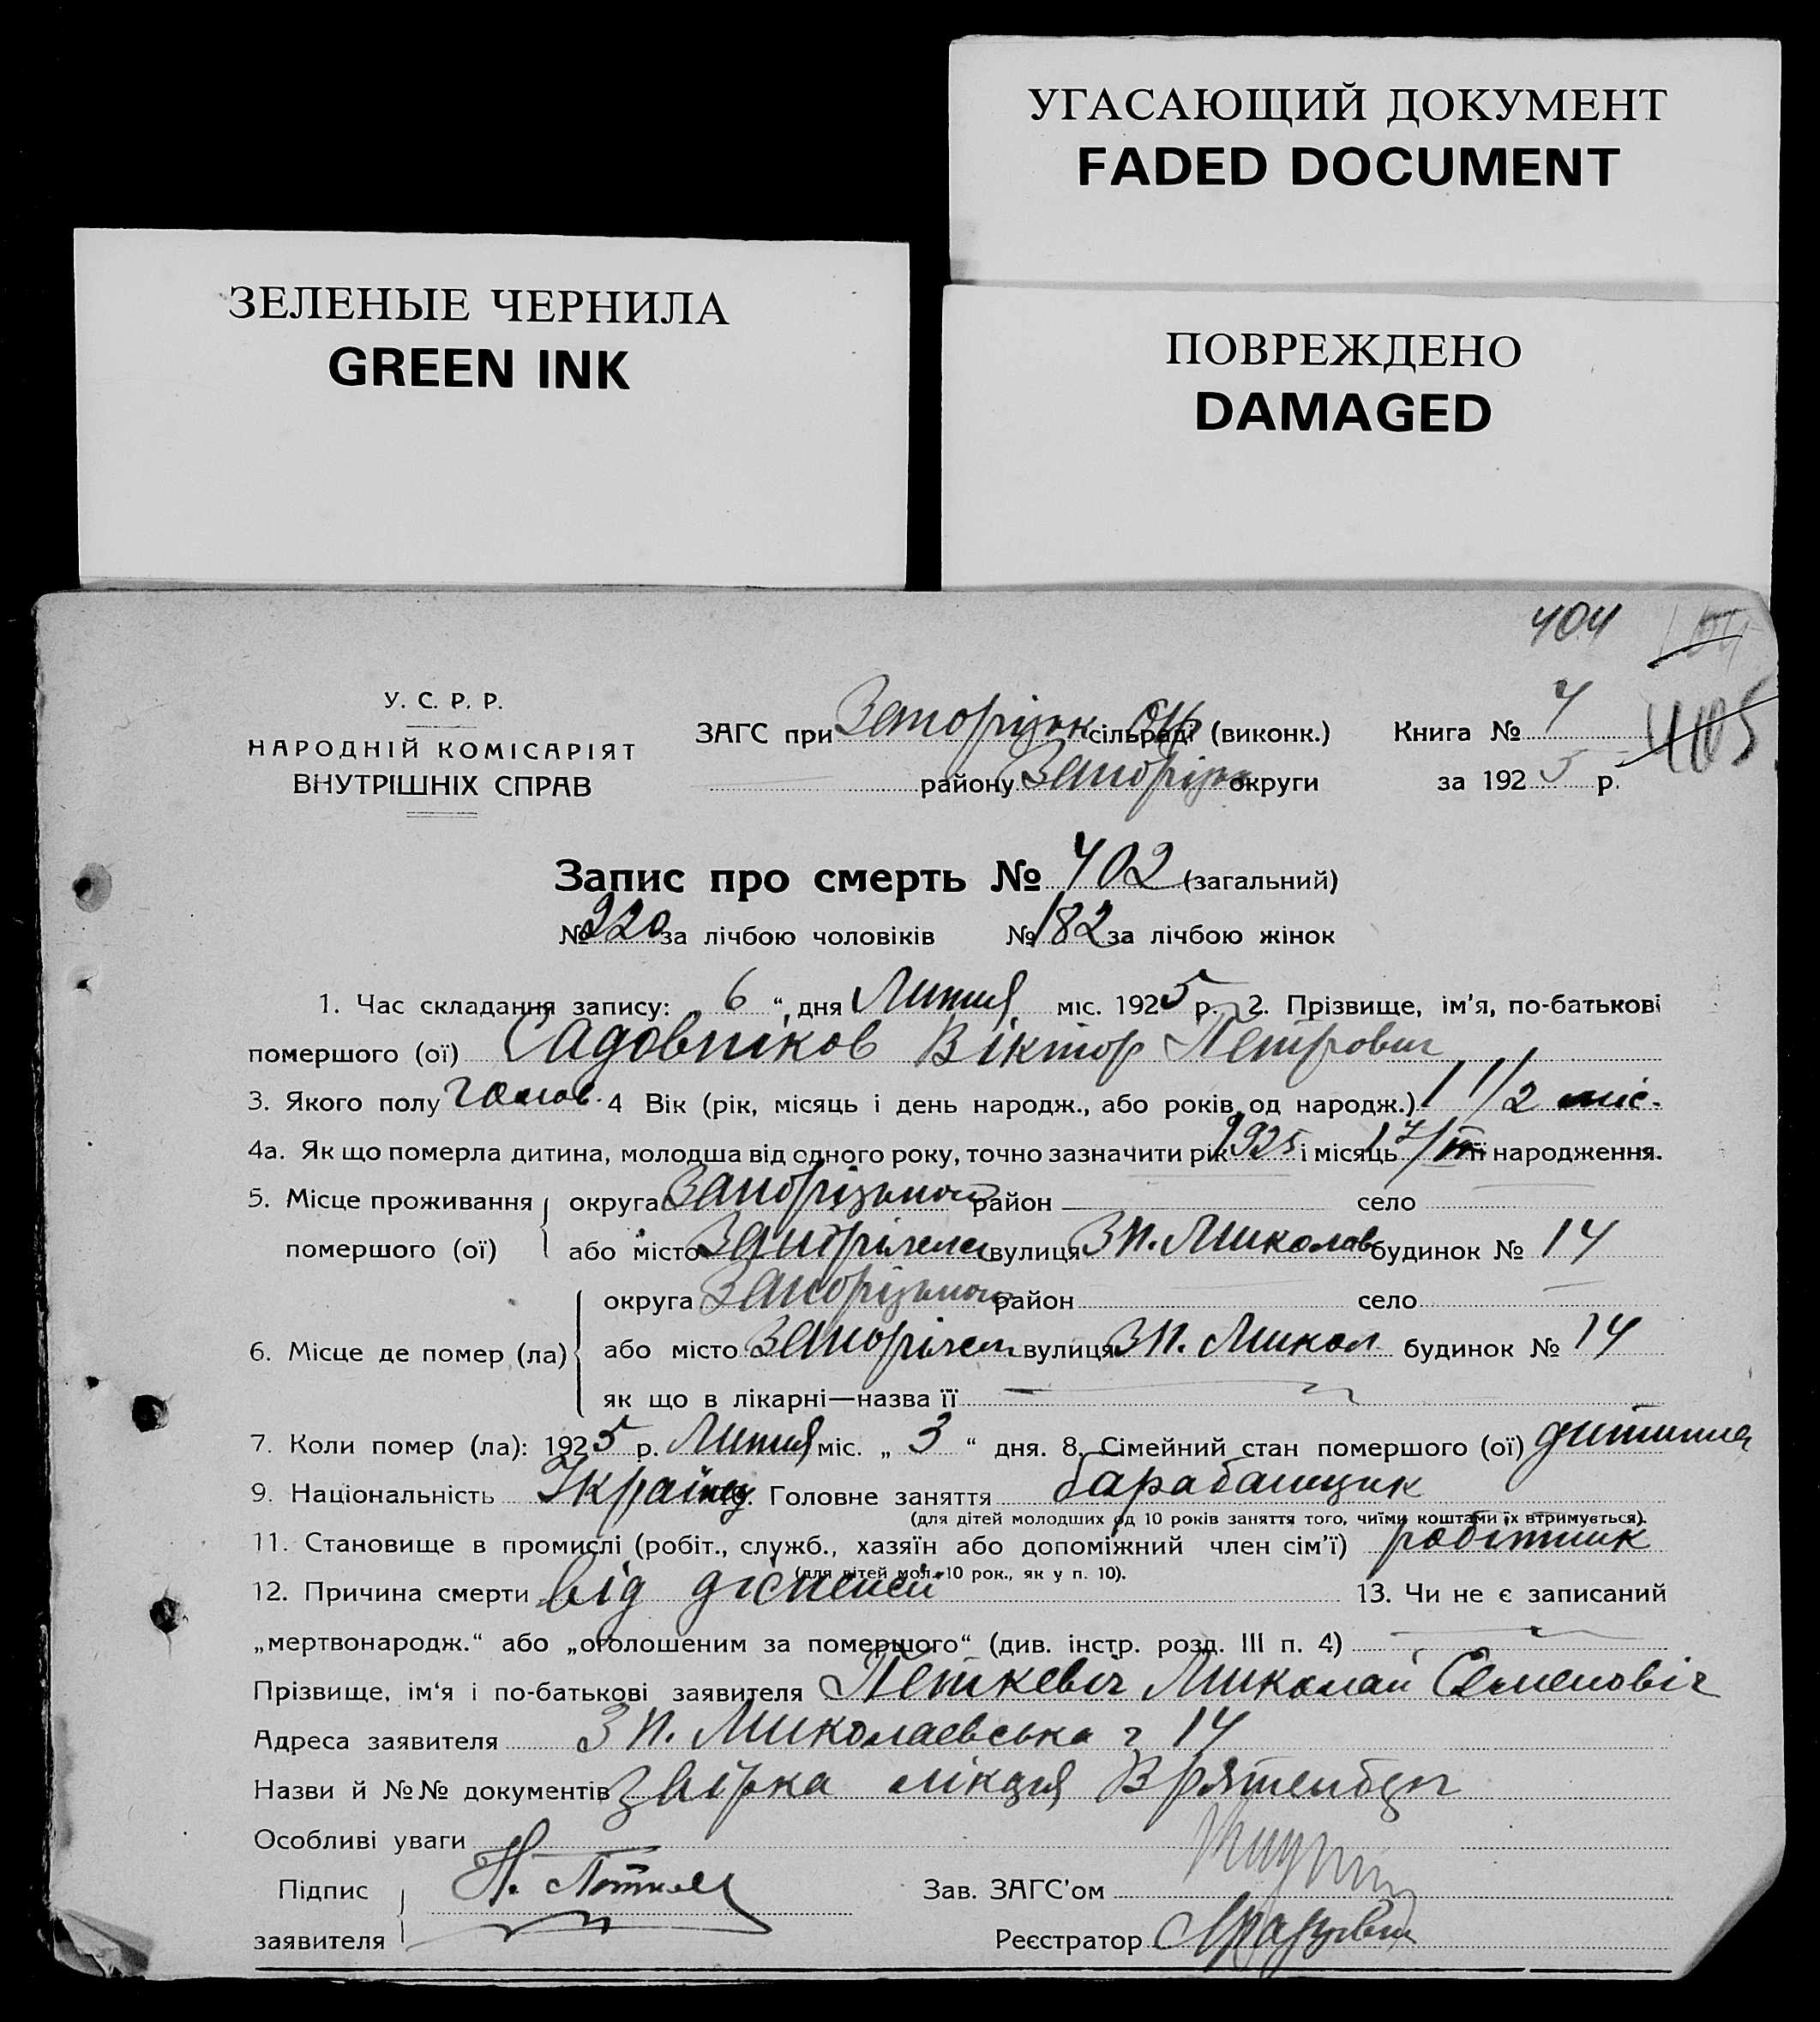 УГАСАЮЩИЙ ДОКУМЕНТ
FADED DOCUMENT
ЗЕЛЕНЫЕ ЧЕРНИЛА
GREEN INK
ПОВРЕЖДЕНО
DAMAGED
404
У. С. Р. Р.
НАРОДНІЙ КОМІСАРІЯТ
ВНУТРІШНІХ СПРАВ
ЗАГС при Запорізьк сільраді (виконк.) Книга № 4 405
району Запорізьк округи за 1925 р.
Запис про смерть № 402 (загальний)
№ 220 за лічбою чоловіків № 182 за лічбою жінок
1. Час складання запису: 6 “, дня Липня міс. 1925 р. 2. Прізвище, ім’я, по-батькові
помершого (ої) Садовніков Віктор Петрович
3. Якого полу чолов. 4 Вік (рік, місяць і день народж., або років од народж.) 1 1/2 міс.
4а. Як що померла дитина, молодша від одного року, точно зазначити рік 1925 і місяць 17/ її народження.
5. Місце проживання округа Запорізької район село
помершого (ої) або місто Запоріжжя вулиця Зп. Миколав будинок № 14
округа Запорізької район село
6. Місце де помер (ла) або місто Запоріжжя вулиця Зп. Микол будинок № 14
як що в лікарні—назва її
7. Коли помер (ла): 1925 р. Липня міс. „ 3 “ дня. 8. Сімейний стан помершого (ої) дитина
9. Національність Україн. Головне заняття барабанщик
(для дітей молодших од 10 років заняття того, чиїми коштами їх втримується).
11. Становище в промислі (робіт., служб., хазяїн або допоміжний член сім’ї) робітник
(для дітей мол. 10 рок., як у п. 10).
12. Причина смерти від діспепсії 13. Чи не є записаний
„мертвонародж.“ або „оголошеним за помершого“ (див. інстр. розд. III п. 4)
Прізвище, ім’я і по-батькові заявителя Петкевіч Миколай Семеновіч
Адреса заявителя Зп. Миколаевська ч 14
Назви й №№ документів звірка лікаря
Особливі уваги
Підпис Зав. ЗАГС’ом
заявителя Реєстратор